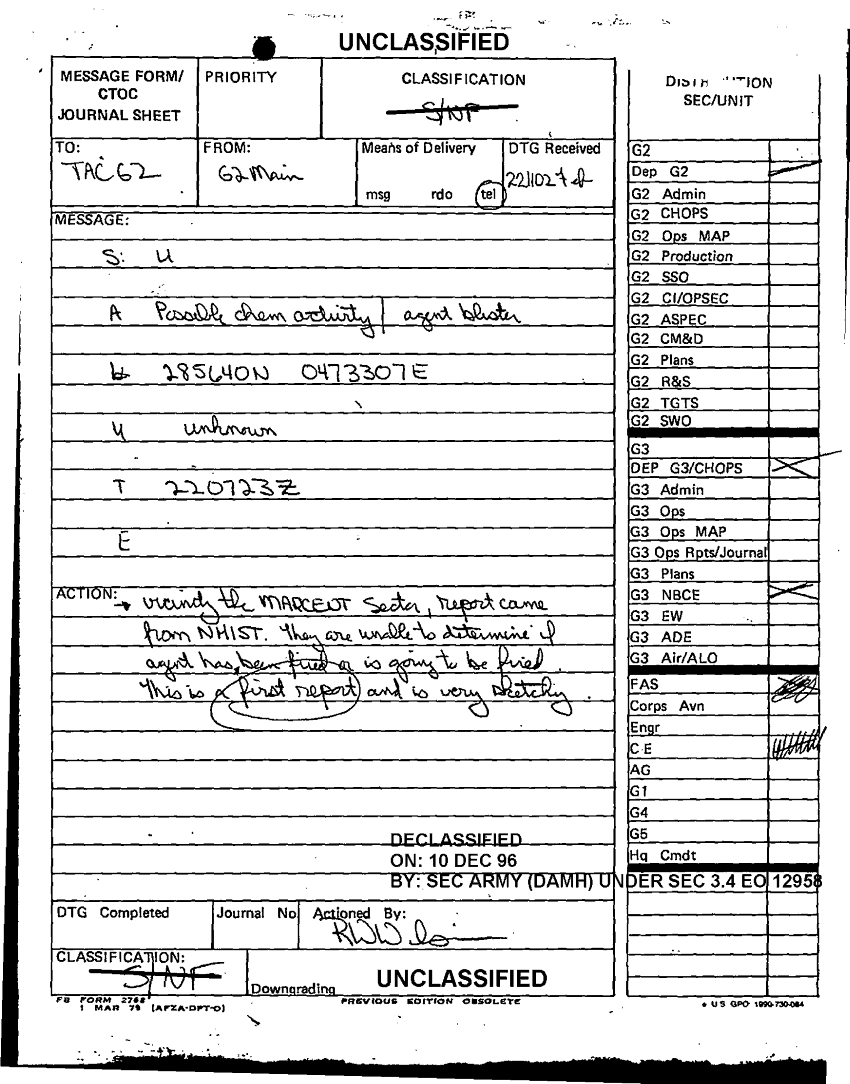 UNCLASSIFIED
MESSAGE FORM/
CTOC
JOURNAL SHEET
PRIORITY
CLASSIFICATION
S/NF
TO:
TAC G2
FROM:
G2 Main
Means of Delivery
msg rdo tel
DTG Received
MESSAGE:
S: U
A Possible chem activity/ agent blister
285640N 0473307E
U unknown
T 220723Z
E
ACTION: → vicinity the MARCENT Sector, report came
from NHIST. They are unable to determine if
agent has been fired or is going to be fired.
This is a first report and is very sketchy.
DECLASSIFIED
ON: 10 DEC 96
BY: SEC ARMY (DAMH) UNDER SEC 3.4 EO 12958
DTG Completed
Journal No
Actioned By:
CLASSIFICATION:
S/NF
Downgrading
UNCLASSIFIED
FB FORM 2768
1 MAR 79 (AFZA-DPT-D)
PREVIOUS EDITION OBSOLETE
SEC/UNIT
G2
Dep G2
G2 Admin
G2 CHOPS
G2 Ops MAP
G2 Production
G2 SSO
G2 CI/OPSEC
G2 ASPEC
G2 CM&D
G2 Plans
G2 R&S
G2 TGTS
G2 SWO
G3
DEP G3/CHOPS
G3 Admin
G3 Ops
G3 Ops MAP
G3 Ops Rpts/Journal
G3 Plans
G3 NBCE
G3 EW
G3 ADE
G3 Air/ALO
FAS
Corps Avn
Engr
C E
AG
G1
G4
G5
Hq Cmdt
U S GPO 1990-730-084